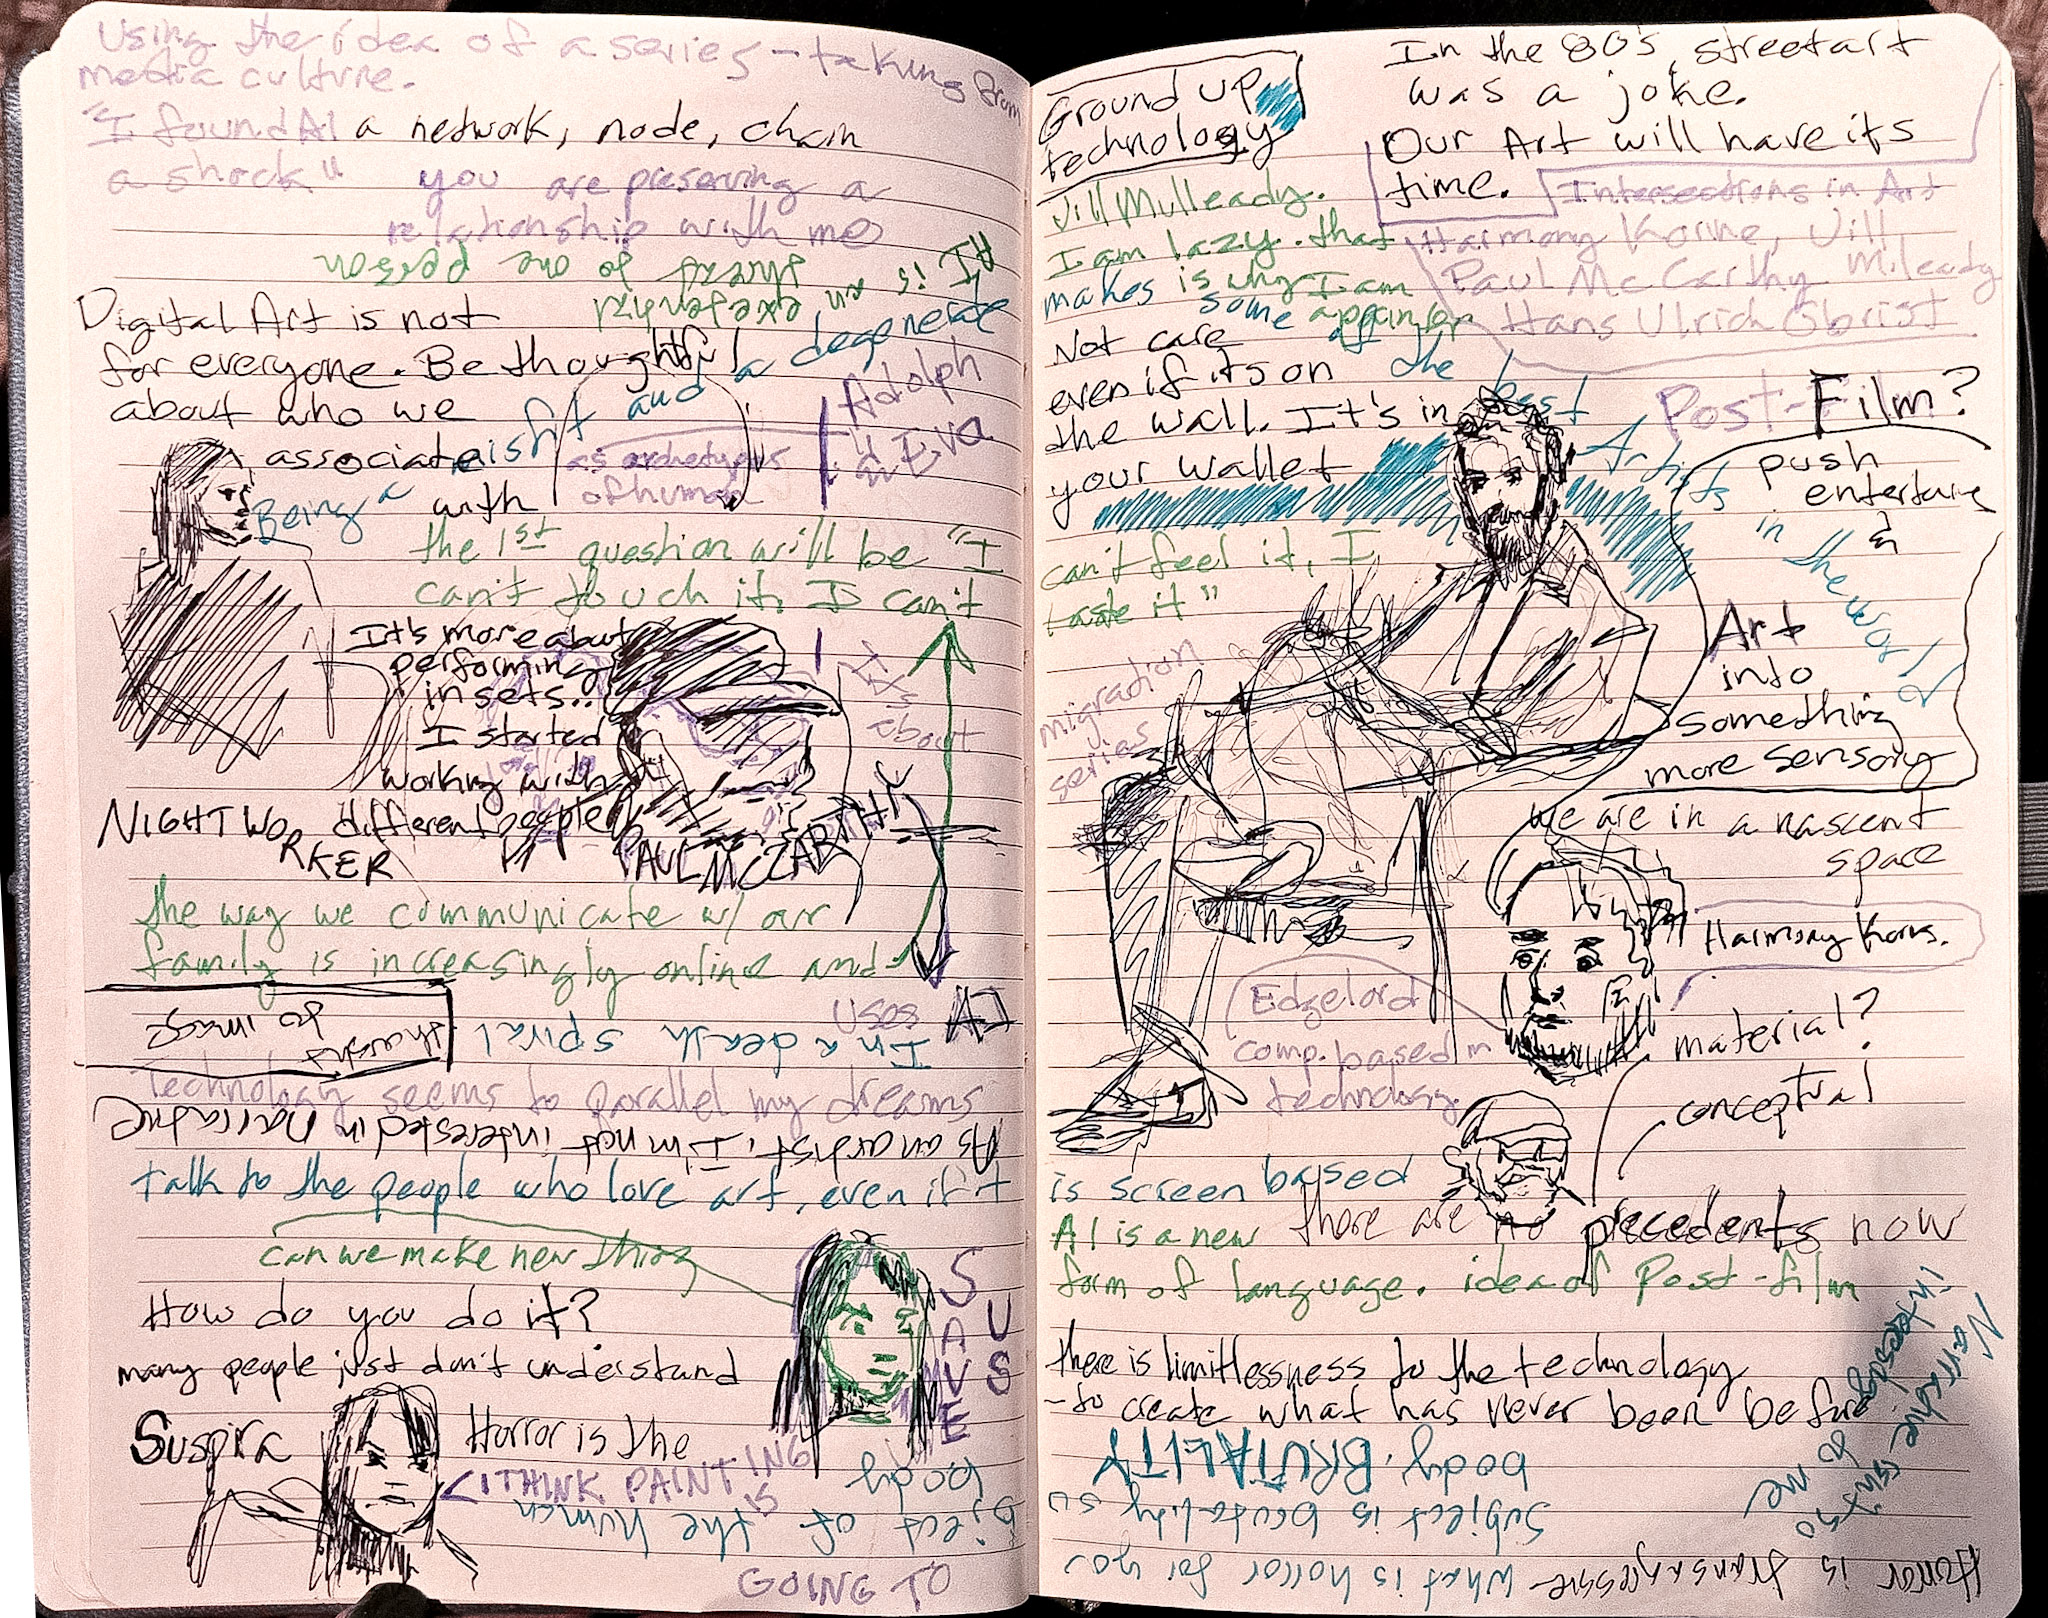 Using the idea of a series - taking from
media culture.
"I found AI
a shock"
a network, node, chain
you are preserving a
relationship with me
AI is an existential
threat of one person
Digital Art is not
for everyone. Be thoughtful
about who we
associate
with
Being a
ish and a degenerate
as archetypes
of human
Adolph
Eva
the 1st question will be "I
can't touch it, I can't
It's more about
performing
in sets..
I started
working with
different people
It's
about
NIGHT WORKER
PAUL MCCARTHY
the way we communicate w/ our
family is increasingly online and
uses AI
thought
to image
I'm a death spiral
Technology seems to parallel my dreams
As an artist, I'm not interested in narrative
talk to the people who love art, even if it
can we make new thing
How do you do it?
many people just don't understand
SAVE
US
Suspira
Horror is the
I THINK PAINTING
IS
GOING TO
bject of the human
body
Ground up
technology
In the 80's, street art
was a joke.
Our Art will have its
time.
Intersections in Art
Harmony Korine, Jill
Paul McCarthy Mileady
Hans Ulrich Obrist
Jill Mulleady.
I am lazy. that
makes is why I am
some
a painter
Not care
even if its on
the wall. It's in
your wallet
of the best
Artists in the world
Post-Film?
push
entertaine
&
Art
into
something
more sensory
can't feel it, I
taste it"
migration
series
we are in a nascent
space
Harmony Korine.
Edgelord
comp. based in
technology
material?
conceptual
is screen based
there are no precedents now
AI is a new
form of language. idea of Post-film
there is limitlessness to the technology
- to create what has never been before
Narrative isn't so
interesting to me
Horror is transgressive - What is horror for you
Subject is brutality su
body. BRUTALITY